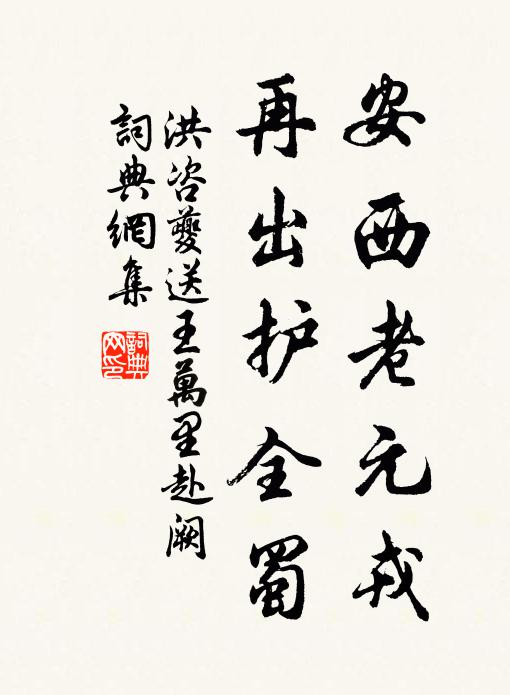 安西老元戎
再出护全蜀
洪咨夔送王萬里赴阙
詞典網集
詞典
网印